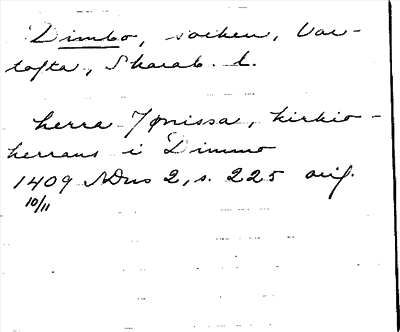 Dimbo, socken, Var-
tofta, Skarab. l.
herra Jønissa, kirkio-
herrans i Dimmo
1409 SDns 2, s. 225 orig.
10/11